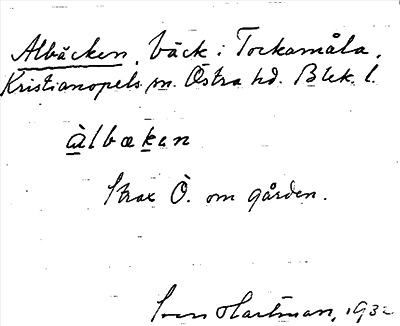 Albäcken, bäck i Tockamåla,
Kristianopels sn. Östra hd. Blek. l.
àlbækan
Strax Ö. om gården.
Sven Hartman, 1932